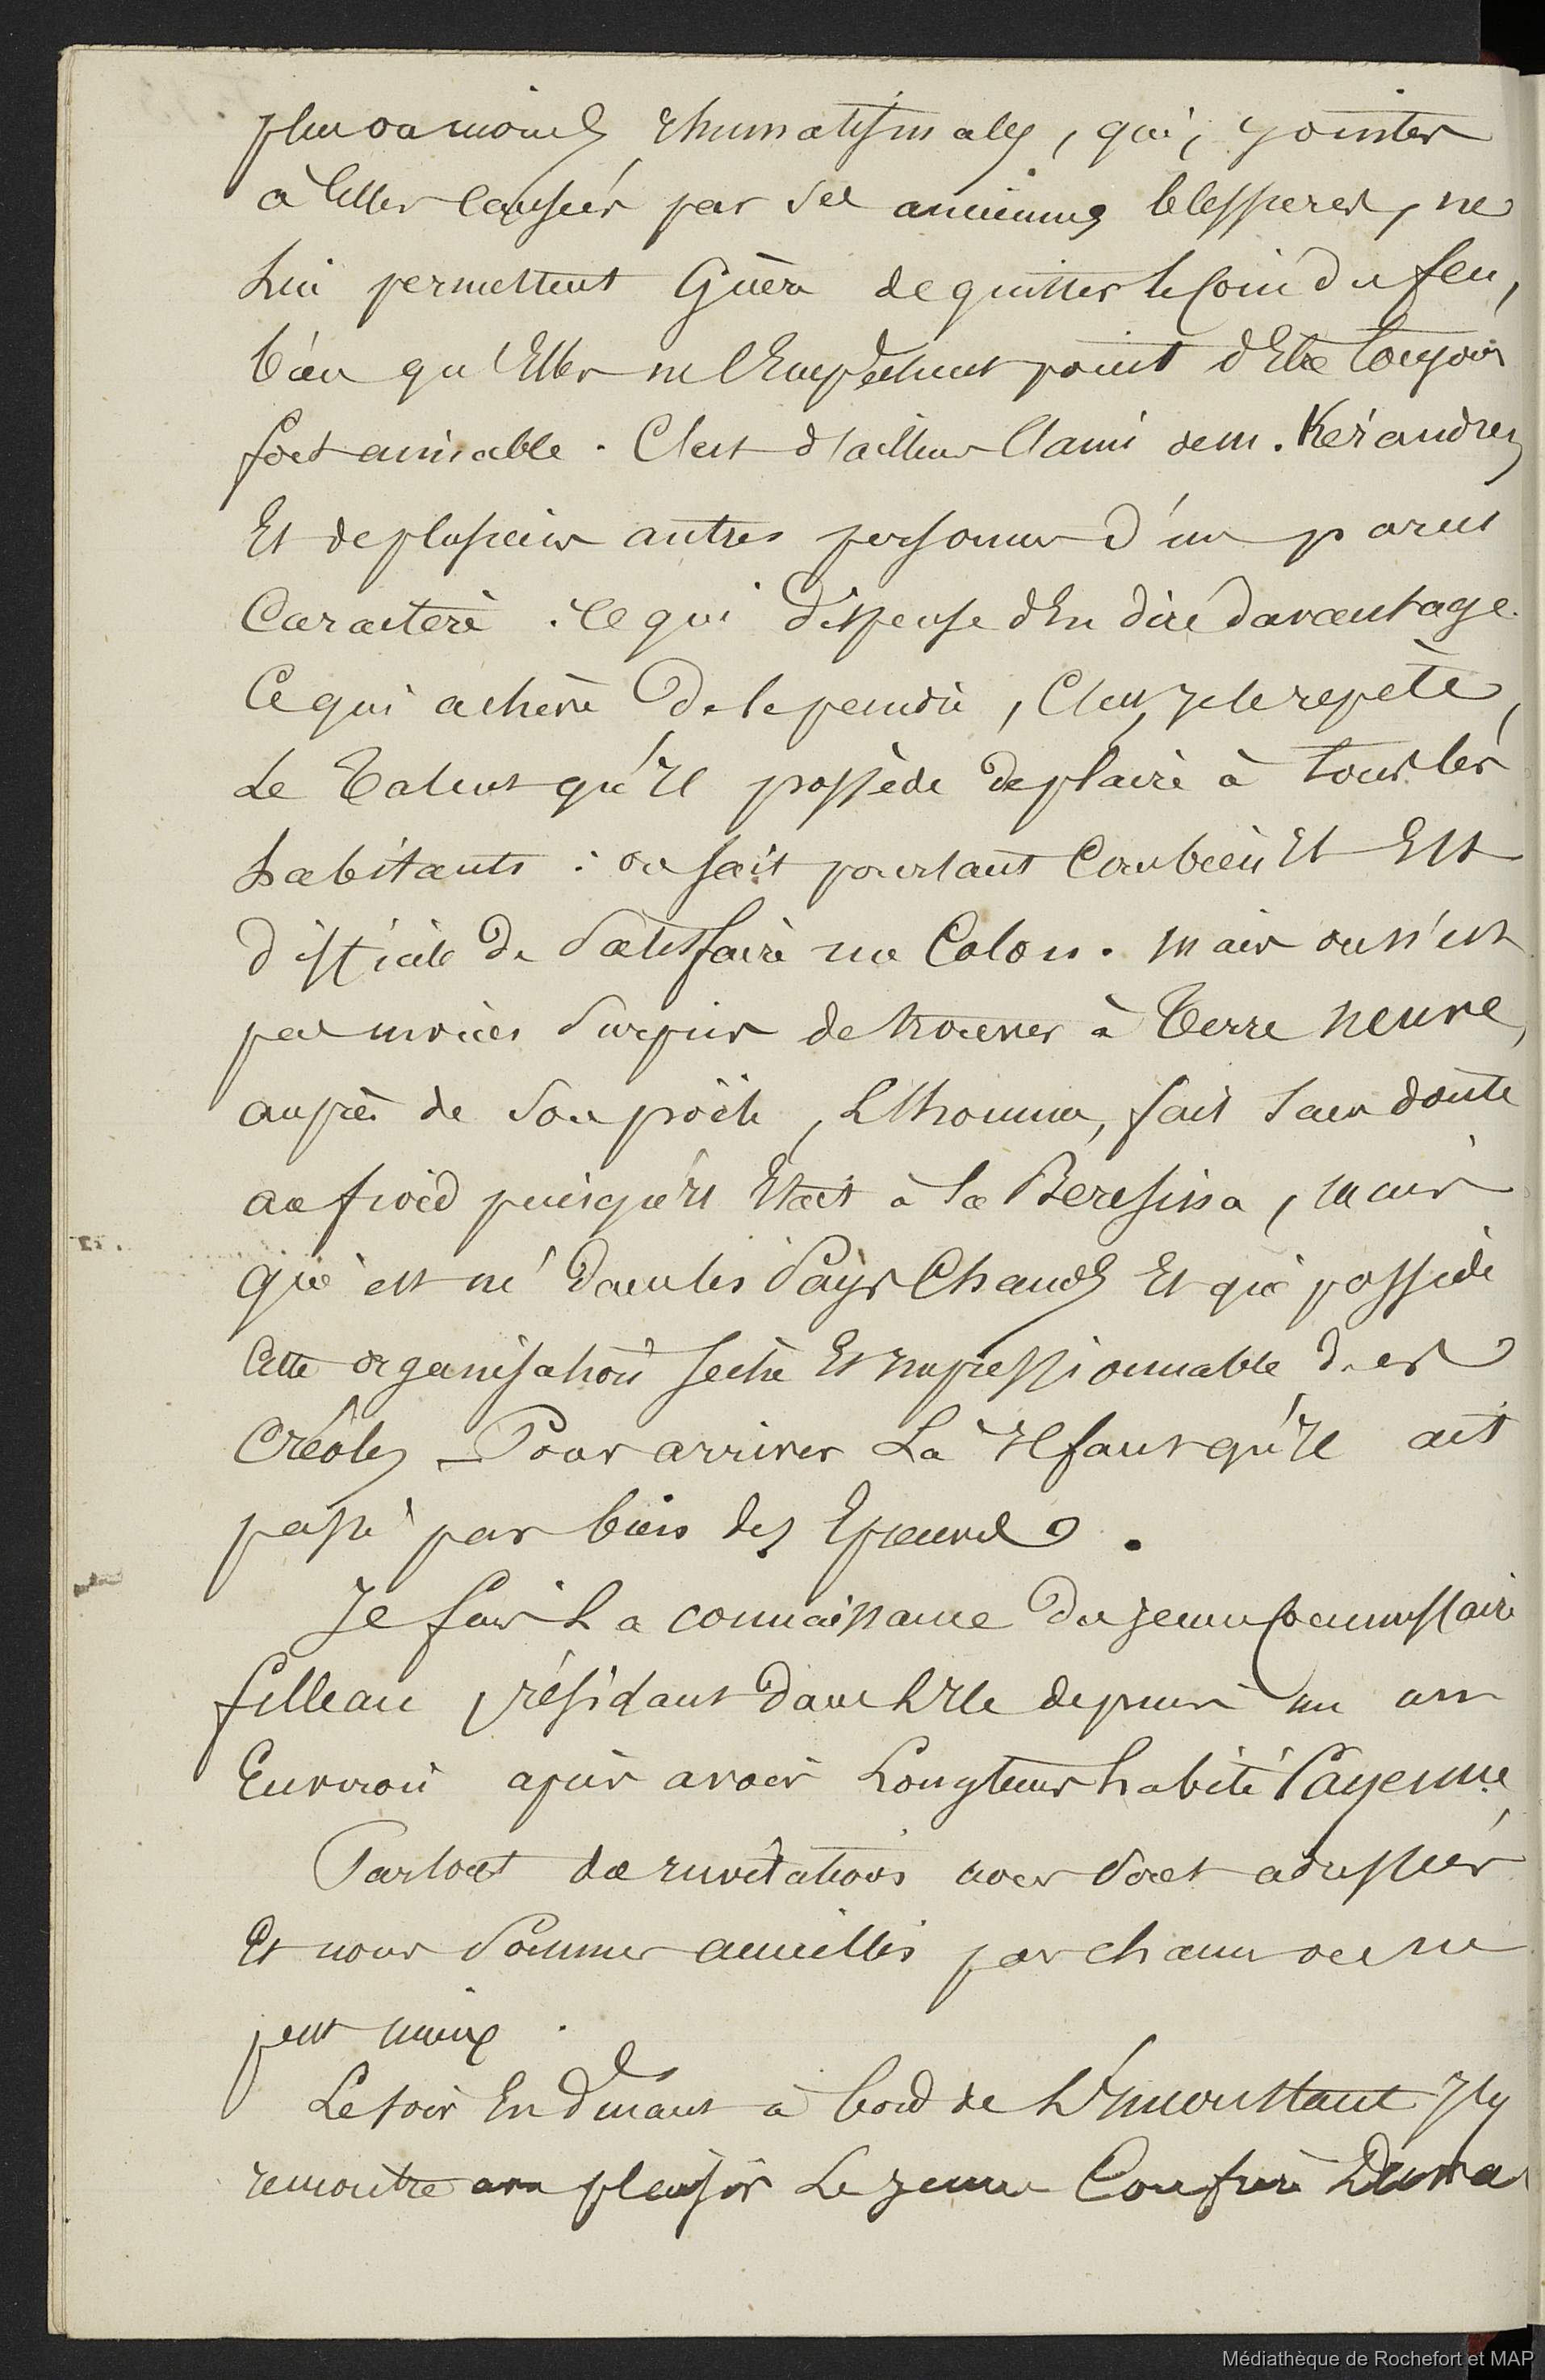 plus ou moins rhumatismales, qui, jointes
à celles causées par ses anciennes blessures, ne
lui permettent Guère de quitter le coin du feu,
bien qu'Elles ne l'Empêchent point d'Etre toujours
fort aimable. C'est d'ailleurs l'ami de M. Kérandren
Et de plusieurs autres personnes d'un pareil
Caractère : ce qui dispense d'En dire davantage.
Ce qui achève de le peindre, C'est, je le repète,
Le Talent qu'Il possède de plaire à tous les
habitants : on sait pourtant Combien Il Est
difficile de Satisfaire un Colon. Mais on n'est
pas moins Surpris de trouver à Terre neuve,
auprès de Son poële, L'homme, fait Sans doute
au froid puisqu'Il Etait à la Beresina, mais
qui est né dans les Pays Chauds Et qui possède
Cette organisation sèche Et Impressionnable des
Créoles – Pour arriver Là Il faut qu'Il ait
passé par bien des Epreuves.
Je fais La connaissance du jeune Commissaire
filleau résidant dans L'Ile depuis un an
Environ après avoir Longtems habité Cayenne
Partout des Invitations nous Sont adressées
Et nous Sommes accueillis par chacun on ne
peut mieux.
Le soir En dinant à bord de L'Inconstant J'y
rencontre avec plaisir Le jeune Confrère
Médiathèque de Rochefort et MAP